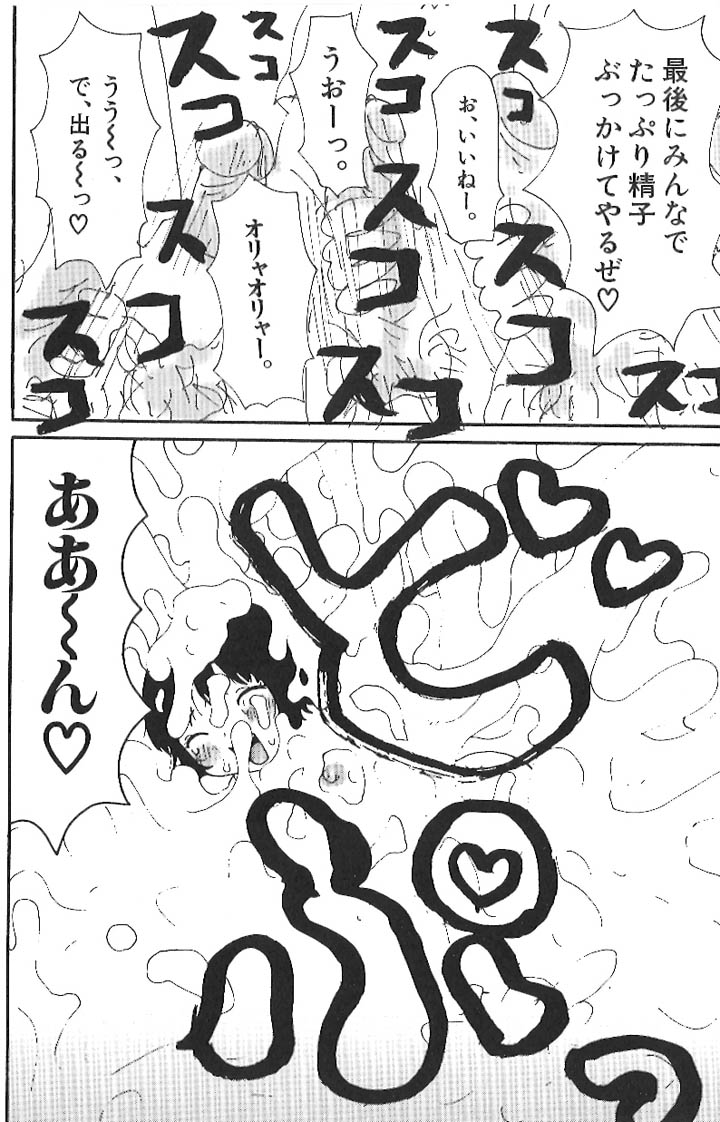 最後にみんなで
たっぷり精子
ぶっかけてやるぜ♡
お、いいねー。
うおーっ。
オリャオリャー。
うう～っ、
で、出る～っ♡
スコ
スコ
スコ
スコ
スコ
スコ
スコ
スコ
スコ
スコ
ああ～ん♡
どぷっ